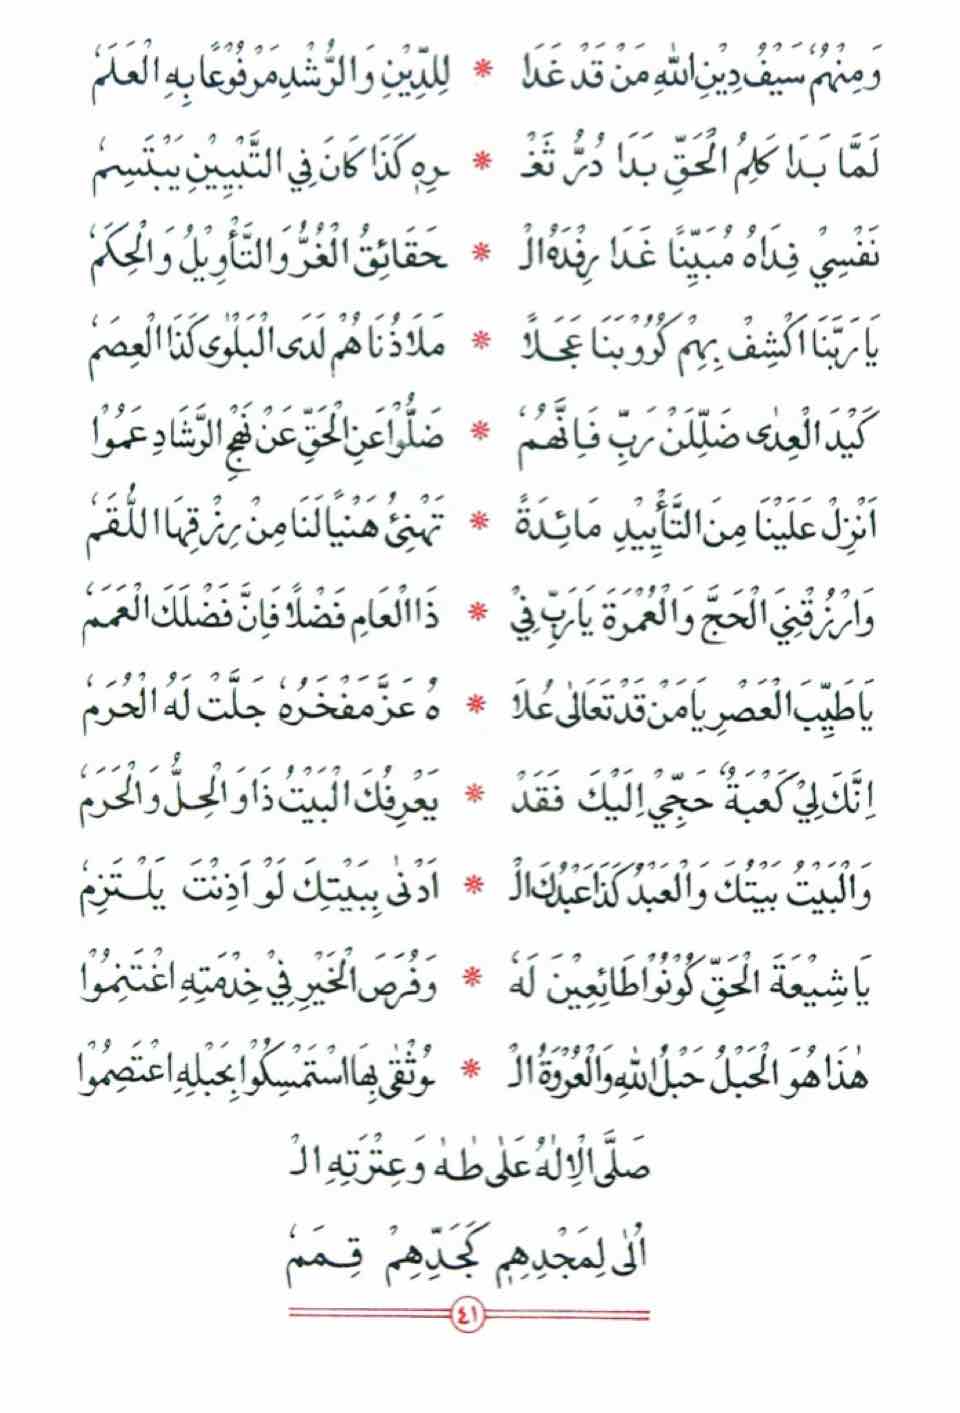 وَمِنْهُمْ سَيْفُ دِيْنِ اللهِ مَنْ قَدْ غَدَا * لِلدِّيْنِ وَالرُّشْدِ مَرْفُوْعًا بِهِ الْعَلَمُ
لَمَّا بَدَا كَلِمُ الْحَقِّ بَدَا دُرُّ ثَغْـ * ـرِهٖ كَذَا كَانَ فِي التَّبْيِيْنِ يَبْتَسِمُ
نَفْسِيْ فِدَاهُ مُبَيِّنًا غَدَا رِفْدَهُ الْـ * ـحَقَائِقُ الْغُرُّ وَالتَّأْوِيْلُ وَالْحِكَمُ
يَا رَبَّنَا اكْشِفْ بِهِمْ كُرُوْبَنَا عَجَلًا * مَلَاذُنَا هُمْ لَدَى الْبَلْوٰى كَذَا الْعِصَمُ
كَيْدَ الْعِدٰى ضَلِّلَنْ رَبِّ فَاِنَّهُمُ * ضَلُّوْا عَنِ الْحَقِّ عَنْ نَهْجِ الرَّشَادِ عَمُوْا
اَنْزِلْ عَلَيْنَا مِنَ التَّأْيِيْدِ مَائِدَةً * تَهْنِئُ هَنْيًا لَنَا مِنْ رِزْقِهَا اللُّقَمُ
وَارْزُقْنِيَ الْحَجَّ وَالْعُمْرَةَ يَا رَبِّ فِيْ * ذَا الْعَامِ فَضْلًا فَاِنَّ فَضْلَكَ الْعَمَمُ
يَا طَيِّبَ الْعَصْرِ يَا مَنْ قَدْ تَعَالٰى عُلَا * هُ عَزَّ مَفْخَرُهُ جَلَّتْ لَهُ الْحُرَمُ
اِنَّكَ لِيْ كَعْبَةٌ حَجِّيْ اِلَيْكَ فَقَدْ * يَعْرِفُكَ الْبَيْتُ ذَا وَالْحِلُّ وَالْحَرَمُ
وَالْبَيْتُ بَيْتُكَ وَالْعَبْدُ كَذَا عَبْدُكَ الْـ * اَدْنٰى بِبَيْتِكَ لَوْ اَذِنْتَ يَلْتَزِمُ
يَا شِيْعَةَ الْحَقِّ كُوْنُوْا طَائِعِيْنَ لَهُ * وَفُرَصَ الْخَيْرِ فِيْ خِدْمَتِهِ اغْتَنِمُوْا
هٰذَا هُوَ الْحَبْلُ حَبْلُ اللهِ وَالْعُرْوَةُ الْـ * ـوُثْقٰى بِهَا اسْتَمْسِكُوْا بِحَبْلِهِ اعْتَصِمُوْا
صَلَّى الْاِلٰهُ عَلٰى طٰهٰ وَعِتْرَتِهِ الْـ
اُلٰى لِمَجْدِهِمِ كَجَدِّهِمْ قِمَمُ
٤١